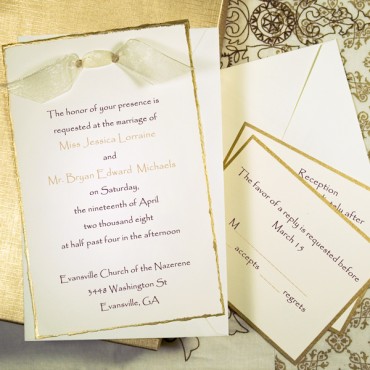 The honor of your presence is
requested at the marriage of
Miss Jessica Lorraine
and
Mr. Bryan Edward Michaels
on Saturday,
the nineteenth of April
two thousand eight
at half past four in the afternoon
Evansville Church of the Nazerene
3448 Washington St
Evansville, GA
Reception
after
The favor of a reply is requested before
March 15
M
accepts
regrets